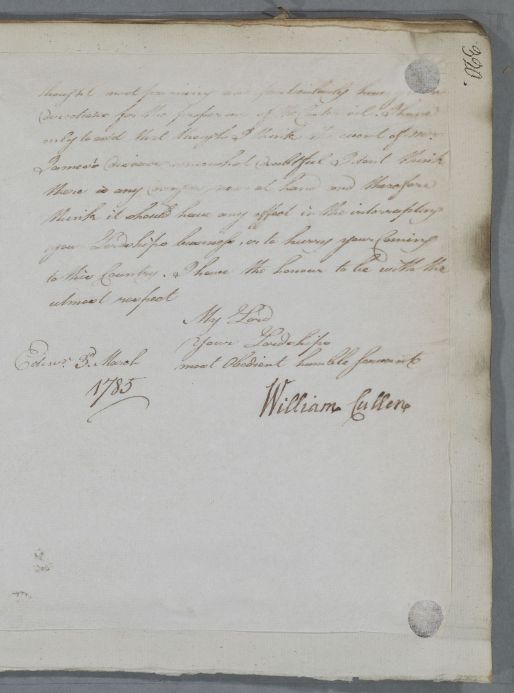 320.
thought most
directions for the purpose of the I have
only to add that though I think the event of Mr
James's disease somewhat doubtful I dont think
there is any danger near at hand and therefore
think it should have any effect in the interrupting
your Lordships business, or to hurry your Coming
to this Country. I have the honour to be with the
utmost respect
My Lord
Your Lordships
most Obedient humble servant
Edinr. 3d. March
1785
William Cullen